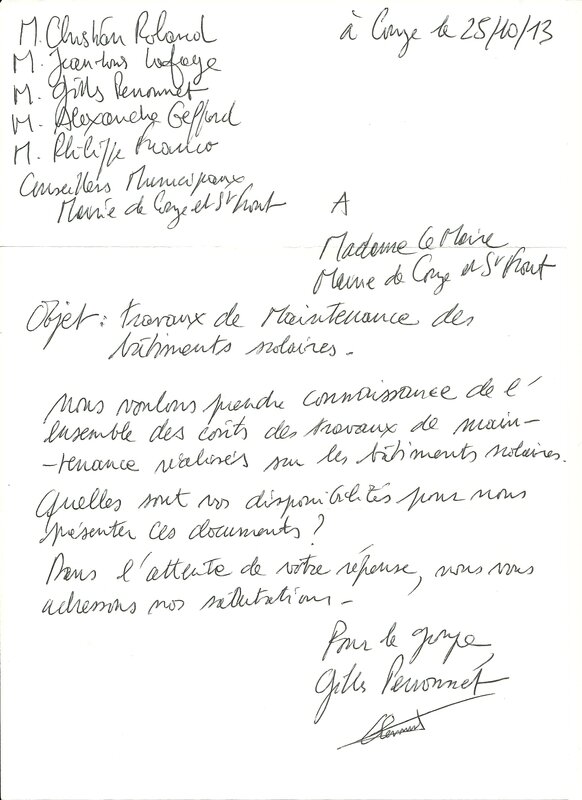 M. Christian Roland
à Couze le 25/10/13
M. Jean-Louis Lafaye
M. Gilles Perronnet
M. Alexandre Gefford
M. Philippe Franco
Conseillers Municipaux
Mairie de Couze et St Front
A
Madame Le Maire
Mairie de Couze et St Front
Objet : travaux de Maintenance des
bâtiments scolaires.
Nous voulons prendre connaissance de l'
ensemble des coûts des travaux de main-
-tenance réalisés sur les bâtiments scolaires.
Quelles sont vos disponibilités pour nous
présenter ces documents ?
Dans l'attente de votre réponse, nous vous
adressons nos salutations -
Pour le groupe,
Gilles Perronnet